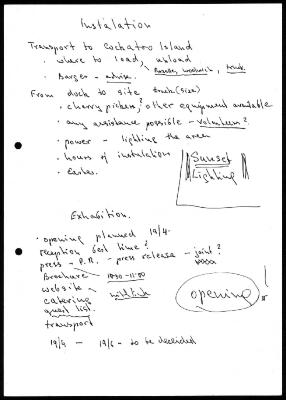 Instalation
Transport to Cockatoo Island
· where to load, unload
Rozelle, Woolwich, truck
· Barges - advise.
From dock to site truck (size)
· cherry pickers? other equipment available
· any assistance possible - volunteers?
· power - lighting the area
· hours of instalation
· Eatles
Sunset
Lighting
Exhibition.
· opening planned 19/4.
reception best time?
press - P.R. - press release - joint?
Brochure 10:30 - 11:00
website
catering
guest list.
transport
opening
19/4 - 19/6 - to be decided